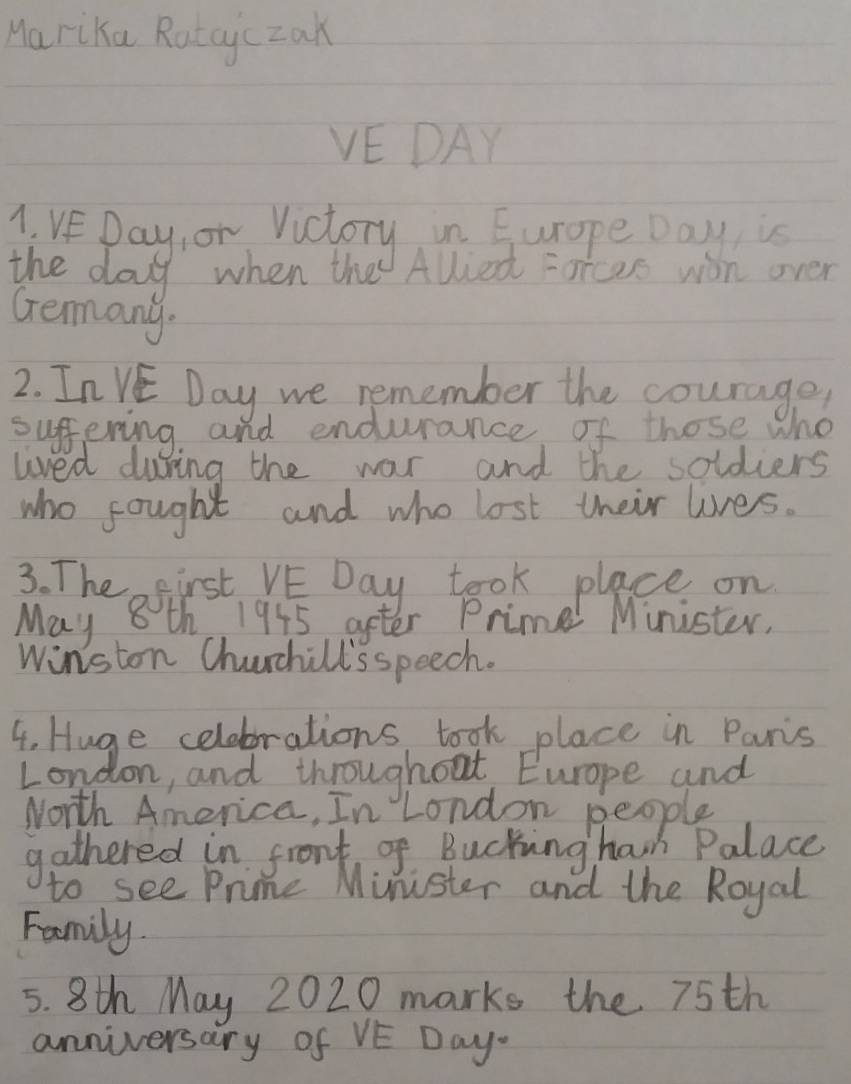 Marika Ratajczak
VE DAY
1. VE Day, or Victory in Europe Day, is
the day when the Allied Forces won over
Germany.
2. In VE Day we remember the courage,
suffering and endurance of those who
lived during the war and the soldiers
who fought and who lost their lives.
3. The first VE Day took place on
May 8th 1945 after Prime Minister,
Winston Churchill's speech.
4. Huge celebrations took place in Paris
London, and throughout Europe and
North America. In London people
gathered in front of Buckingham Palace
to see Prime Minister and the Royal
Family.
5. 8th May 2020 marks the 75th
anniversary of VE Day.